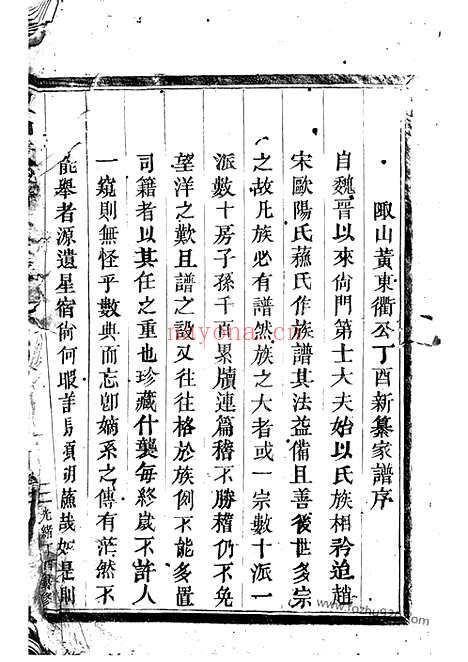 陬山黃東衢公丁酉新纂家譜序
自魏晉以來尙門第士大夫始以氏族相矜迨趙
宋歐陽氏蘇氏作族譜其法益備且善後世多宗
之故凡族必有譜然族之大者或一宗數十派一
派數十房子孫千百累牘連篇稽不勝稽仍不免
望洋之歎且譜之設又往往格於族例不能多置
司籍者以其任之重也珍藏什襲每終歲不許人
一窺則無怪乎數典而忘卽嫡系之傳有茫然不
能舉者源遺星宿尙何暇詳 項胡蘇哉如是則
光緒丁酉 修
nayona.cn
www.fozhu920.com